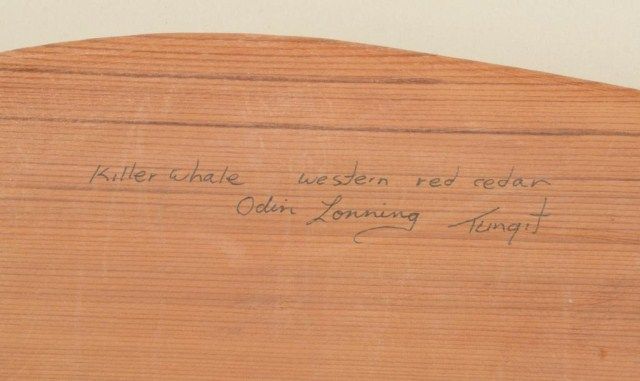 Killer whale western red cedar
Odin Lonning Tlingit